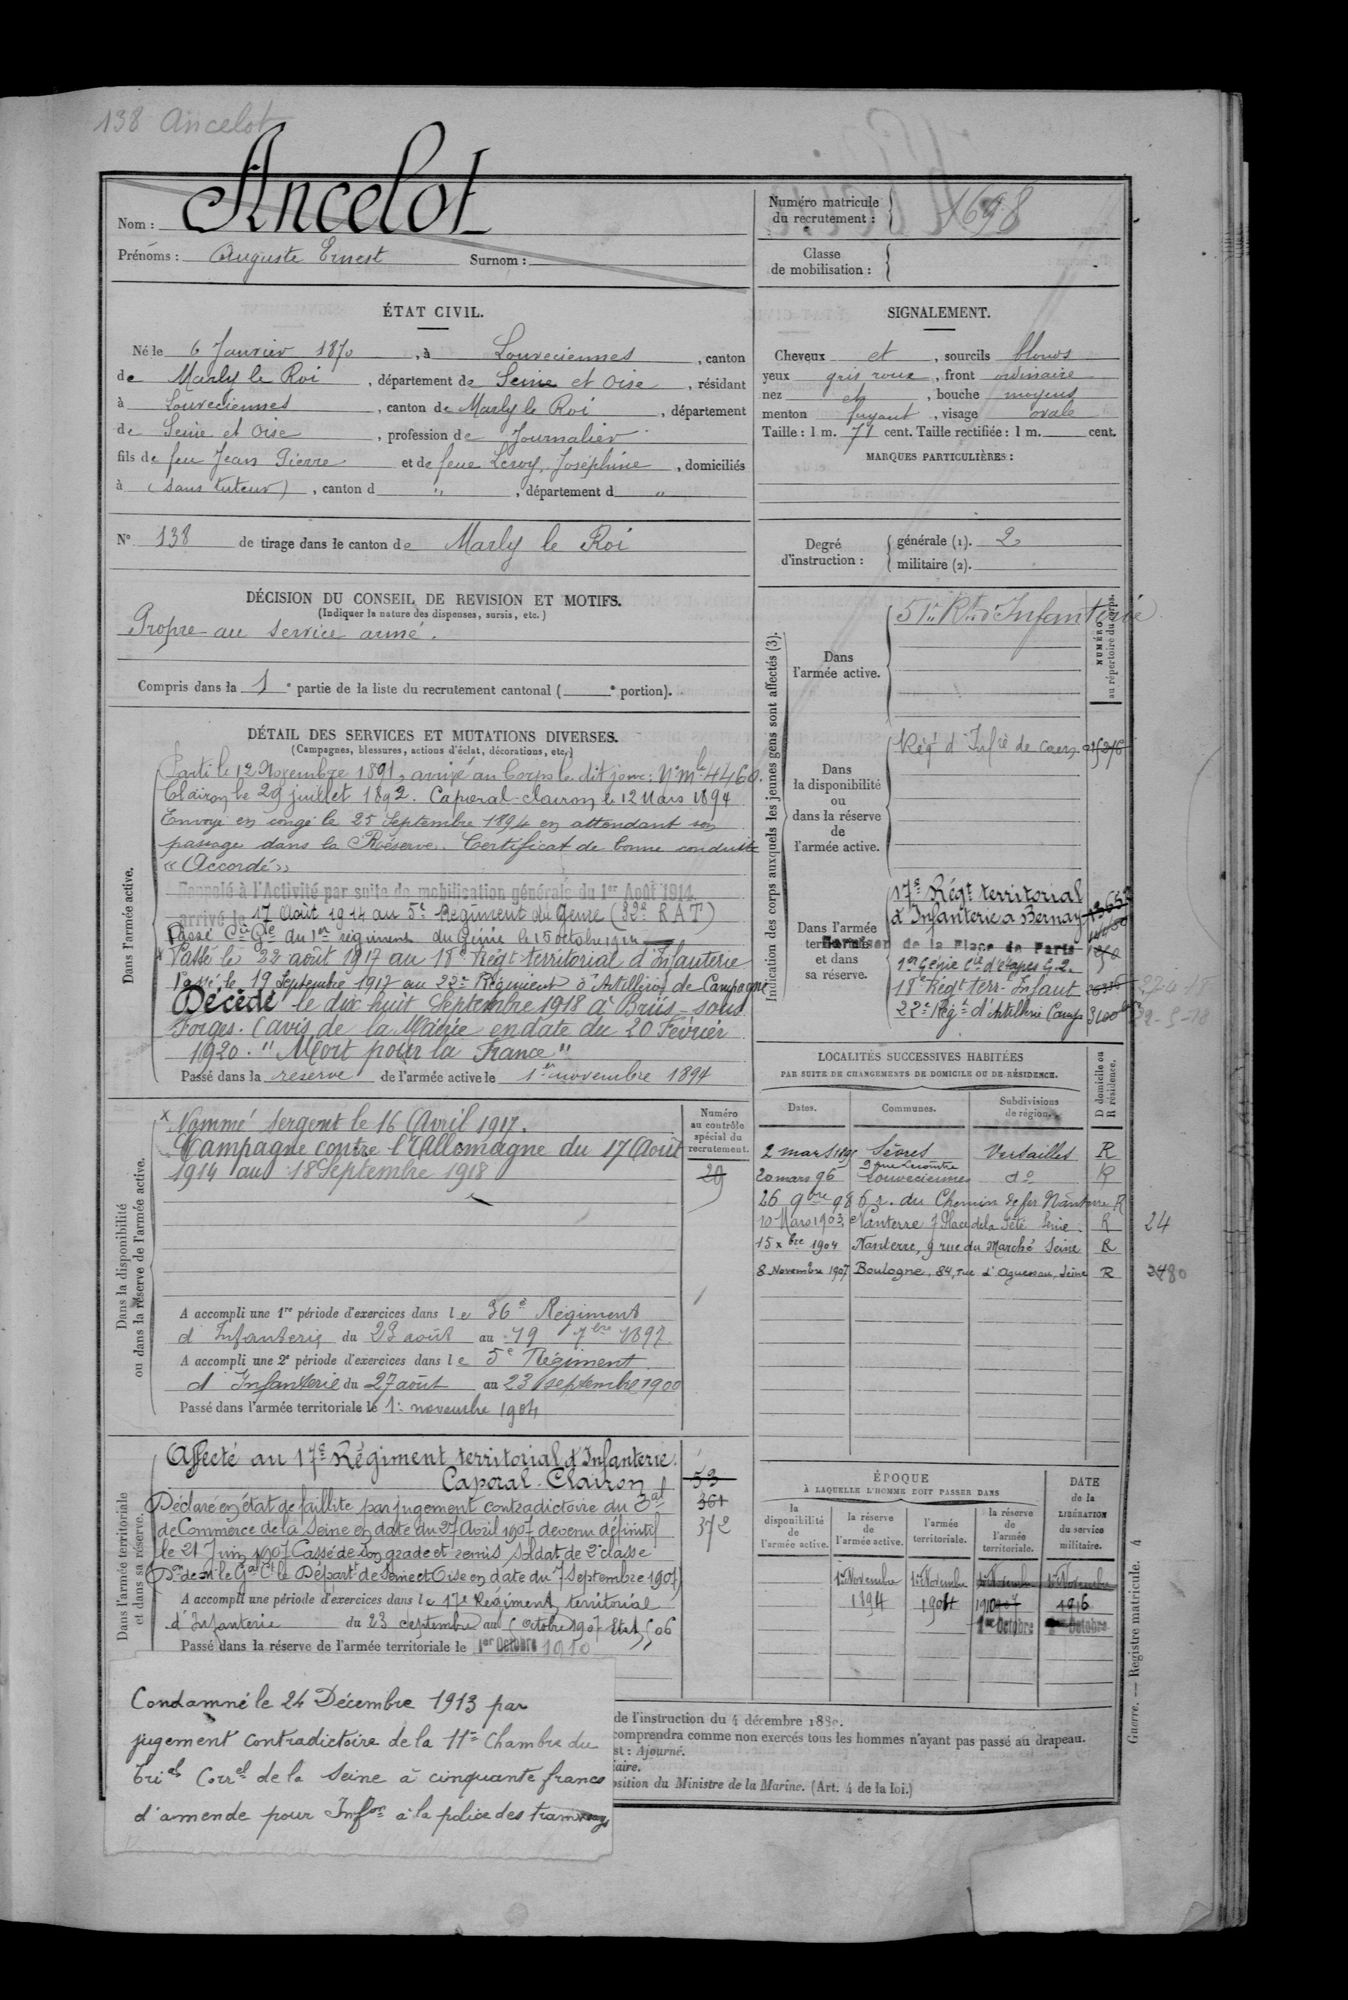 138 Ancelot
Nom : Ancelot
Prénoms : Auguste Ernest Surnom :
Numéro matricule du recrutement : 1698
Classe de mobilisation :
ÉTAT CIVIL.
Né le 6 Janvier 1870, à Louveciennes, canton
de Marly le Roi, département de Seine et Oise, résidant
à Louveciennes, canton de Marly le Roi, département
de Seine et Oise, profession de Journalier
fils de feu Jean Pierre et de feue Leroy, Joséphine, domiciliés
à (sans tuteur), canton d " , département d "
SIGNALEMENT.
Cheveux et , sourcils blonds
yeux gris roux, front ordinaire
nez et , bouche moyens
menton fuyant, visage ovale
Taille : 1 m. 71 cent. Taille rectifiée : 1 m. cent.
MARQUES PARTICULIÈRES :
N° 138 de tirage dans le canton de Marly le Roi
Degré d'instruction :
générale (1). 2
militaire (2).
DÉCISION DU CONSEIL DE REVISION ET MOTIFS.
(Indiquer la nature des dispenses, sursis, etc.)
Propre au service armé.
Compris dans la 1e partie de la liste du recrutement cantonal ( e portion).
DÉTAIL DES SERVICES ET MUTATIONS DIVERSES.
(Campagnes, blessures, actions d'éclat, décorations, etc.)
Dans l'armée active.
Parti le 12 Novembre 1891, arrivé au Corps le dit jour : N° mle 4460.
Clairon le 29 juillet 1892. Caporal-clairon le 12 Mars 1894
Envoyé en congé le 25 Septembre 1894 en attendant son
passage dans la Réserve. Certificat de bonne conduite
« Accordé »
Rappelé à l'Activité par suite de mobilisation générale du 1er Août 1914.
arrivé le 17 Août 1914 au 5e Régiment du Génie (32e RAT)
Passé Cie du 1er régiment du Génie le 15 octobre 1914
x Passé le 22 août 1917 au 18e Régt territorial d'Infanterie
Passé le 19 Septembre 1917 au 22e Régiment d'Artillerie de Campagne
Décédé le dix huit Septembre 1918 à Briis-sous
Forges. (avis de la Mairie en date du 20 Février
1920. "Mort pour la France"
Passé dans la réserve de l'armée active le 1er novembre 1894
Indication des corps auxquels les jeunes gens sont affectés (3).
NUMÉRO au répertoire du corps.
Dans l'armée active.
51e Rt d'Infanterie
Dans la disponibilité ou dans la réserve de l'armée active.
Régt d'Infie de Caen
Dans l'armée territoriale et dans sa réserve.
17e Régt territorial
d'Infanterie à Bernay
Garnison de la Place de Paris
1er Génie Cie d'étapes G.2.
18e Régt terr. Infant 27-4-18
22e Régt d'Artillerie Camp 3100 29-5-18
LOCALITÉS SUCCESSIVES HABITÉES
PAR SUITE DE CHANGEMENTS DE DOMICILE OU DE RÉSIDENCE.
Dates. Communes. Subdivisions de région. D domicile ou R résidence.
2 mars 1895 Sèvres Versailles R
20 mars 96 Louveciennes do R
26 9bre 98 6 r. du Chemin de fer Nanterre R
10 Mars 1903 Nanterre 7 Place de la Fête Seine R 24
15 xbre 1904 Nanterre, 9 rue du Marché Seine R
8 Novembre 1907 Boulogne, 84, rue d'Aguesseau, Seine R 2480
Dans la disponibilité ou dans la réserve de l'armée active.
Numéro au contrôle spécial du recrutement.
x Nommé sergent le 16 Avril 1917.
Campagne contre l'Allemagne du 17 Août
1914 au 18 Septembre 1918
29
A accompli une 1re période d'exercices dans le 36e Régiment
d'Infanterie du 23 août au 19 7bre 1897
A accompli une 2e période d'exercices dans le 5e Régiment
d'Infanterie du 27 août au 23 septembre 1900
Passé dans l'armée territoriale le 1er novembre 1904
Dans l'armée territoriale et dans sa réserve.
Affecté au 17e Régiment territorial d'Infanterie.
Caporal-Clairon
53
361
372
Déclaré en état de faillite par jugement contradictoire du Bal
de Commerce de la Seine en date du 27 Avril 1907 devenu définitif
le 21 Juin 1907. Cassé de son grade et remis soldat de 2e classe
Don de M. le Gal Ct le Départt de Seine et Oise en date du 7 Septembre 1907
A accompli une période d'exercices dans le 17e Régiment territorial
d'Infanterie du 23 septembre au 1 octobre 1907 Etat 5 06
Passé dans la réserve de l'armée territoriale le 1er Octobre 1910
ÉPOQUE
À LAQUELLE L'HOMME DOIT PASSER DANS
la disponibilité de l'armée active. la réserve de l'armée active. l'armée territoriale. la réserve de l'armée territoriale. DATE de la LIBÉRATION du service militaire.
1er Novembre 1er Novembre 1er Novembre 1er Novembre
1894 1904 1910 1916
1er Octobre 1er Octobre
Condamné le 24 Décembre 1913 par
jugement contradictoire de la 11e Chambre du
Trial Correl de la Seine à cinquante francs
d'amende pour Infon à la police des tramways
de l'instruction du 4 décembre 1889.
comprendra comme non exercés tous les hommes n'ayant pas passé au drapeau.
st : Ajourné.
iaire.
osition du Ministre de la Marine. (Art. 4 de la loi.)
Guerre. — Registre matricule. 4